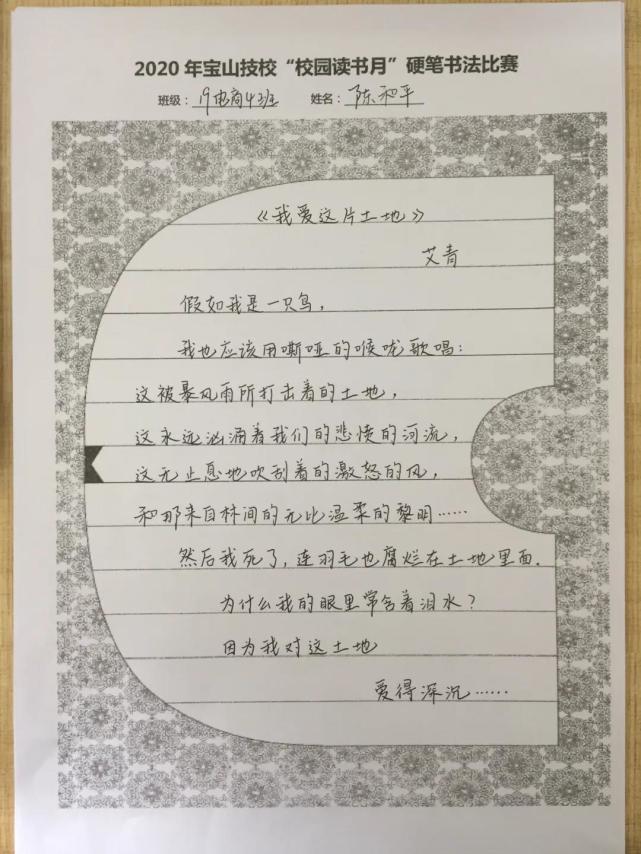 2020年宝山技校“校园读书月”硬笔书法比赛
班级：19电商4班 姓名：陈和平
《我爱这片土地》
艾青
假如我是一只鸟，
我也应该用嘶哑的喉咙歌唱：
这被暴风雨所打击着的土地，
这永远汹涌着我们的悲愤的河流，
这无止息地吹刮着的激怒的风，
和那来自林间的无比温柔的黎明……
然后我死了，连羽毛也腐烂在土地里面.
为什么我的眼里常含着泪水？
因为我对这土地
爱得深沉……